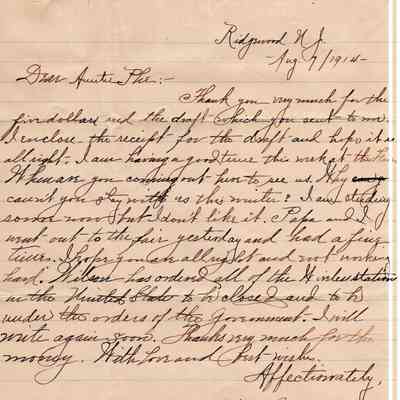 Ridgwood N.J.
Aug 7/1914-
Dear Auntie Phe:-
Thank you very much for the
five dollars and the draft which you sent to me.
I enclose the receipt for the draft and hope it is
all right. I am having a good time this week at the
When are you coming out here to see us. Why
can't you stay with us this winter? I am studying
some now but I don't like it. Papa and I
went out to the fair yesterday and had a fine
time. I hope you are all right and not working
hard. Wilson has ordered all of the Wireless stations
in the United State to be closed and to be
under the orders of the government. I will
write again soon. Thanks very much for the
money. With love and best wishes.
Affectionately,